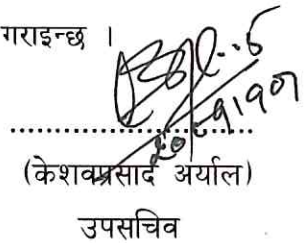 गराइन्छ ।
....................................
(केशवप्रसाद अर्याल)
उपसचिव